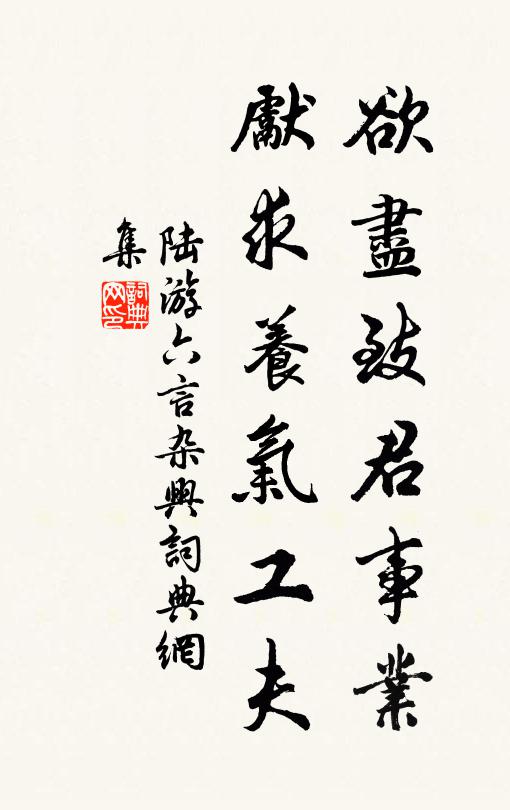 欲盡致君事業
獻求養氣工夫
陆游六言杂興詞典網
集
詞典
网印